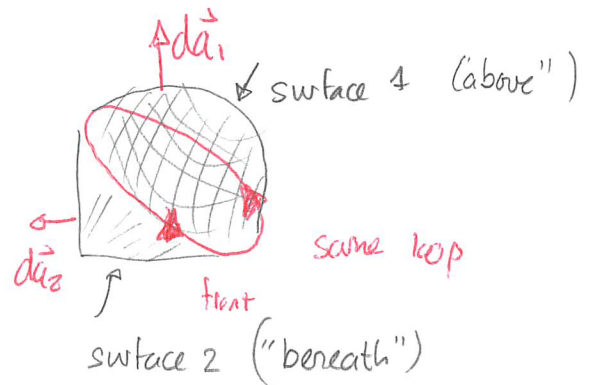 da⃗₁
surface 1 (above")
da⃗₂
same loop
front
surface 2 ("beneath")